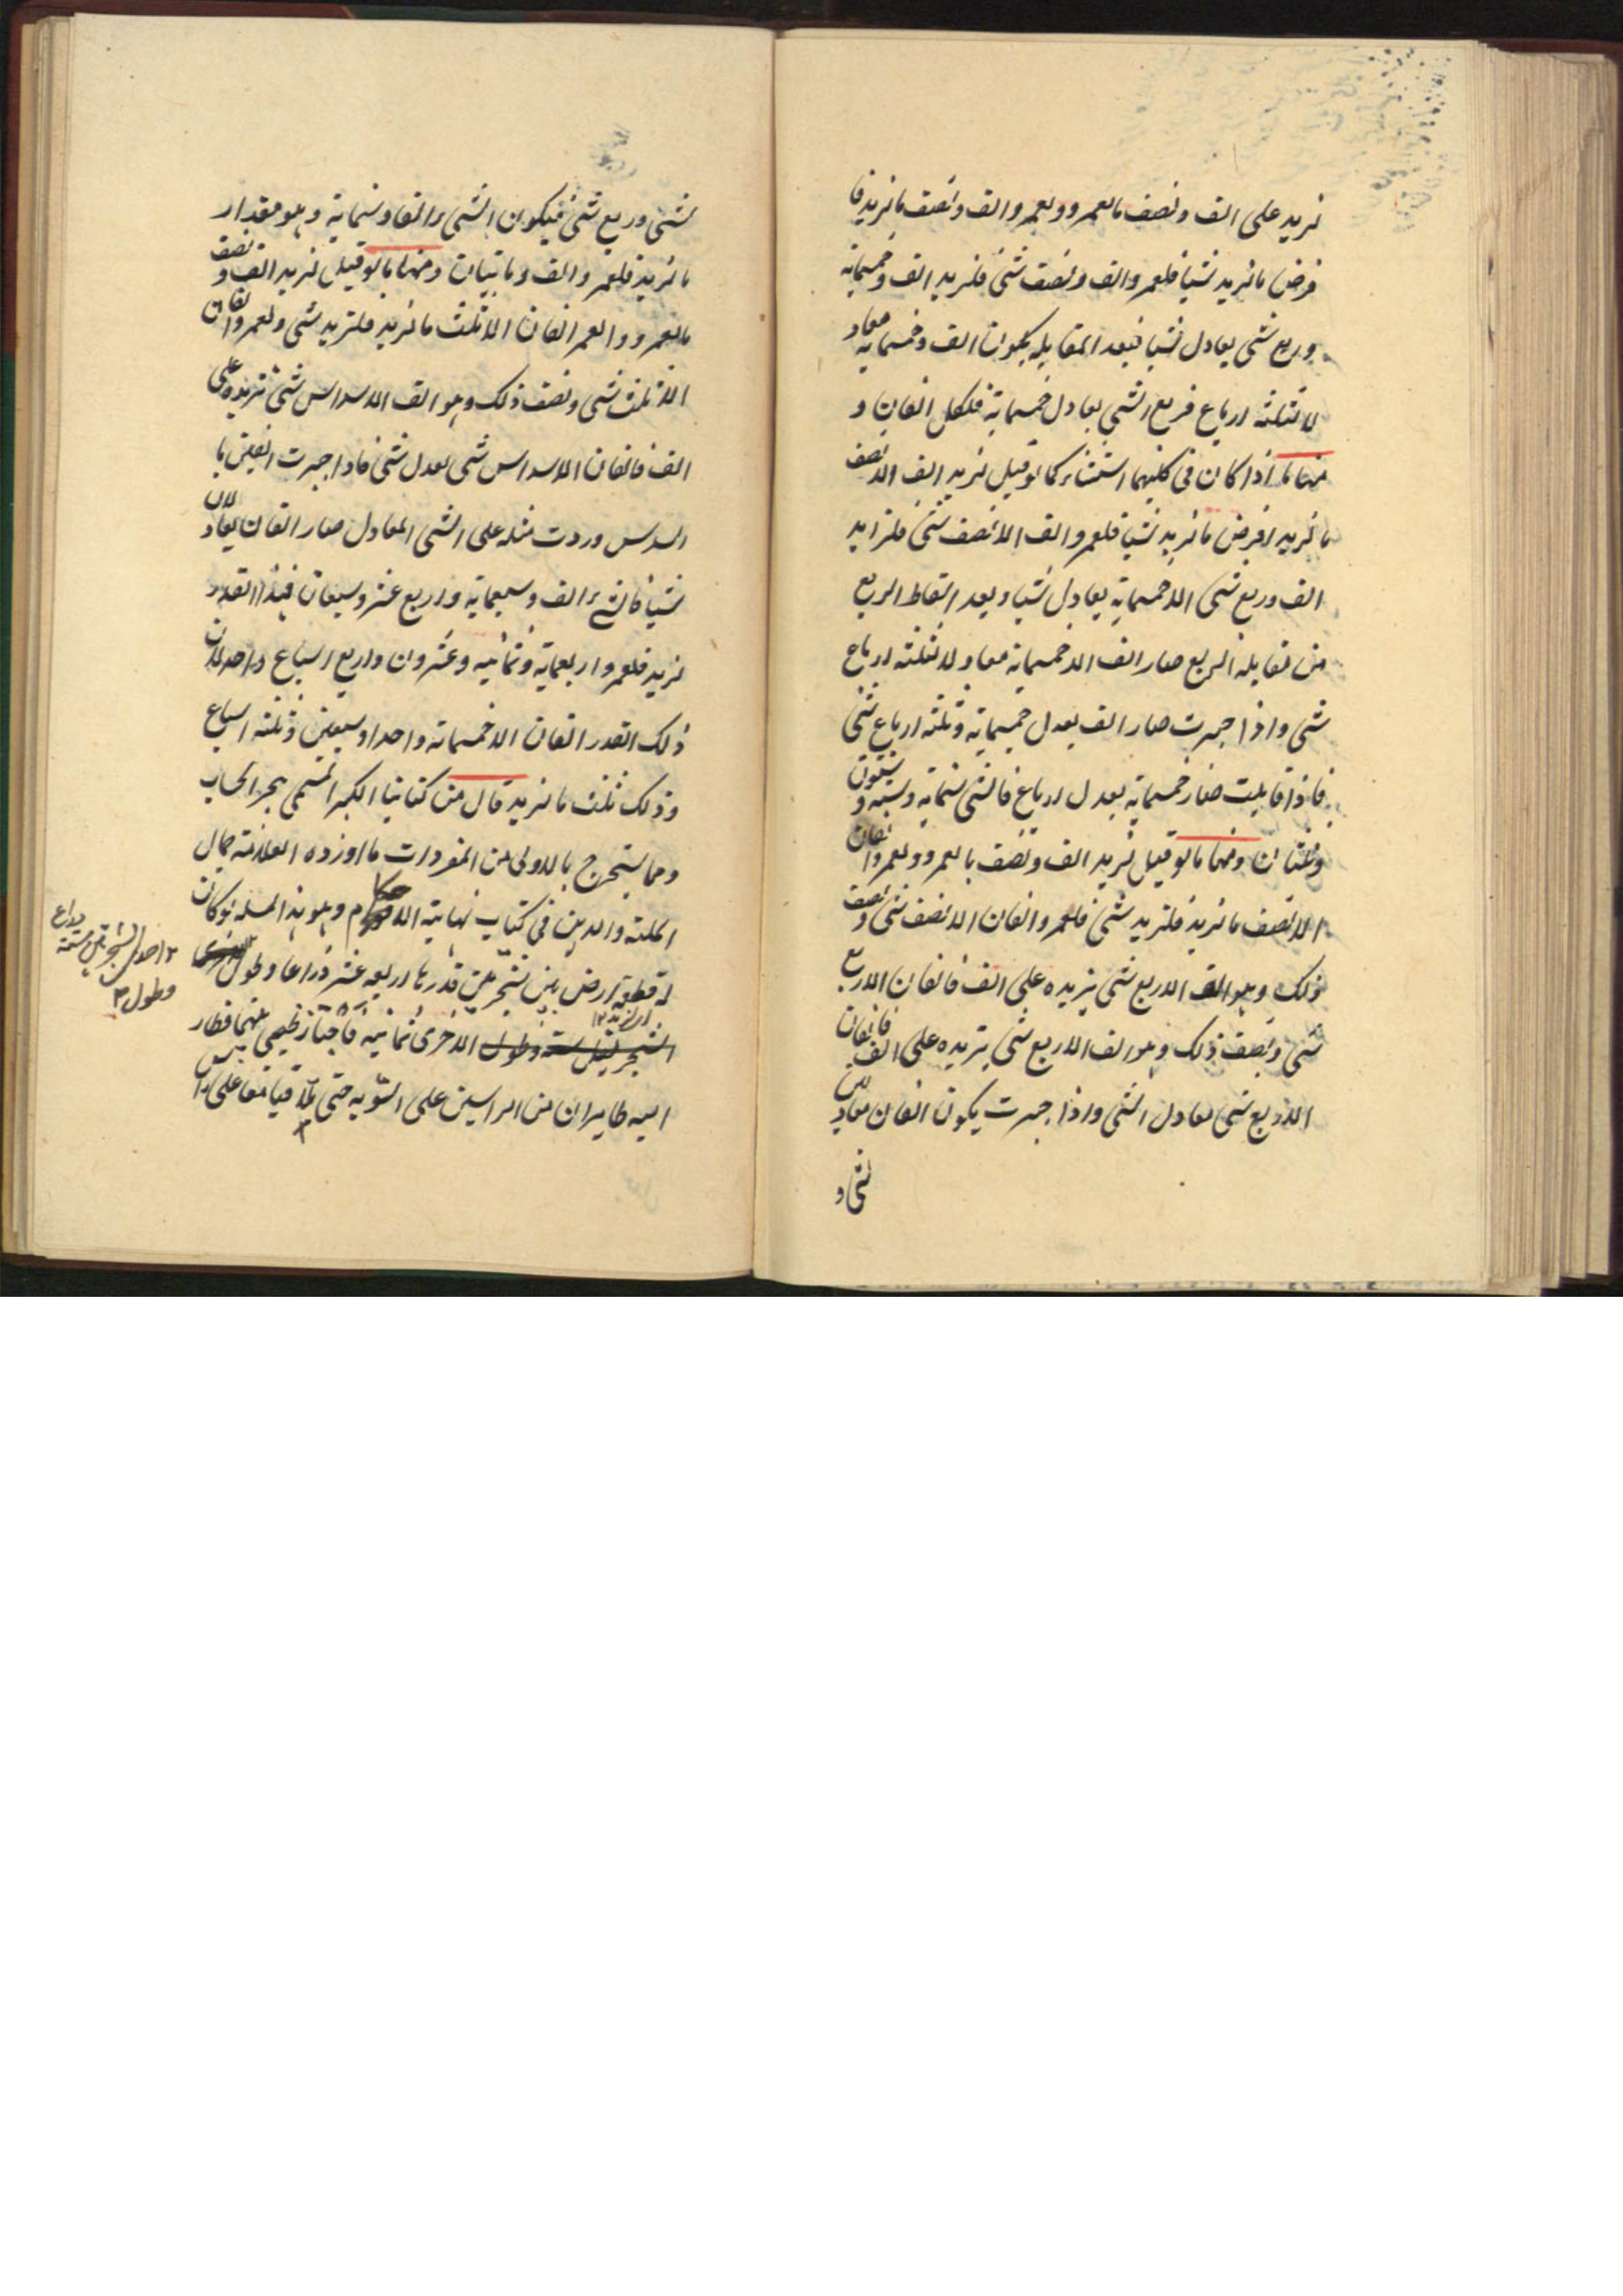 لزيد على الف ونصف ما لعمرو ولعمرو الف ونصف ما لزيد فا
فرض ما لزيد شيا فلعمرو الف ونصف شئ فلزيد الف وخمسماية
وربع شئ يعادل شيا فبعد المقابله يكون الف وخمسماية معاد
لا لثلثه ارباع فربع الشئ يعادل خمسماية فلكل الفان و
منها ما اذا كان في كليهما استثناء كما لو قيل لزيد الف الا نصف
ما لزيد افرض ما لزيد شيا فلعمرو الف الا نصف شئ فلزيد
الف وربع شئ الا خمسماية يعادل شيا وبعد اسقاط الربع
من مقابله الربع صار الف الا خمسماية معادلا لثلثه ارباع
شئ واذا جبرت صار الف يعدل خمسماية وثلثه ارباع شئ
فاذا قابلت صار خمسماية يعدل ارباع فالشئ ستماية وستة وستون
وثلثان ومنها ما لو قيل لزيد الف ونصف ما لعمرو ولعمرو الفان
الا نصف ما لزيد فلزيد شئ فلعمرو الفان الا نصف شئ ونصف
ذلك وهو الف الا ربع شئ يزيده على الف فالفان الا ربع
شئ ونصف ذلك وهو الف الا ربع شئ يزيده على الف فالفان
الا ربع شئ يعادل الشئ واذا جبرت يكون الفان معادلين
لشئ و
لشئ وربع شئ فيكون الشئ الفا وستماية وهو مقدار
ما لزيد فلعمرو الف وماتيان ومنها ما لو قيل لزيد الف و نصف
ما لعمرو ولعمر الفان الا ثلث ما لزيد فلزيد شئ ولعمرو الفان
الا ثلث شئ ونصف ذلك وهو الف الا سداس شئ تزيده على
الف فالفان الا سداس شئ يعدل شئ فاذا جبرت الفين با
السدس وردت مثله على الشئ المعادل صار الفان يعادلان
شيا فالشئ الف وسبعماية واربع عشر وسبعان فبذا القدر
لزيد فلعمرو اربعماية وثمانيه وعشرون واربع اسباع واحد لان
ذلك القدر الفان الا خمسماته واحدا وسبعين وثلثه اسباع
وذلك ثلث ما لزيد قال من كتابنا الكبير المسمى ببحر الحساب
ومما يستخرج بالاولى من المفردات ما اورده العلامة جمال
الملته والدين في كتاب نهاية الاحكام وهو هذا المسله لو كان
له قطعة ارض بين شجرتين قدرها اربعه عشر ذراعا وطول
الاخرى ثمانيه فاجتاز ظبي بينهما فطار
اليه طايران من الراسين على السويه حتى تلاقيا معا على
احدى الشجرتين ستة
وطول